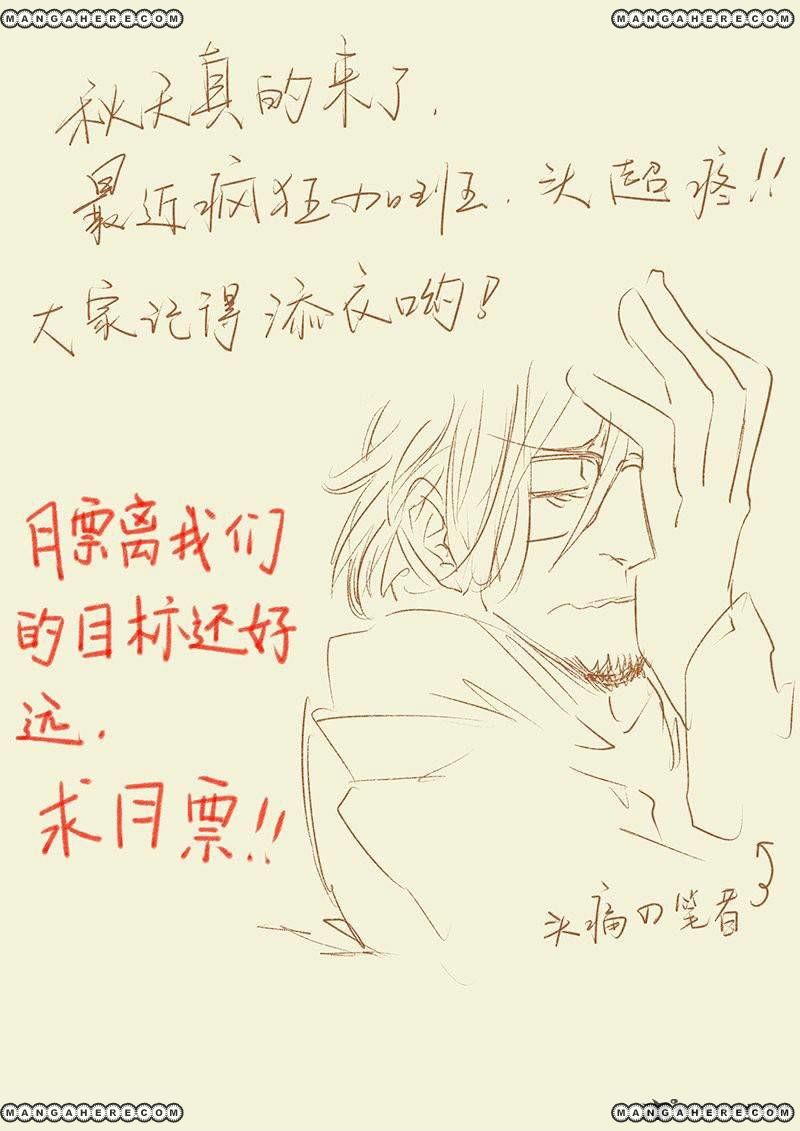 MANGAHERE.COM
MANGAHERE.COM
秋天真的来了.
最近疯狂加班.头超疼!!
大家记得添衣哟!
月票离我们
的目标还好
远.
求月票!!
头痛の笔者
MANGAHERE.COM
MANGAHERE.COM